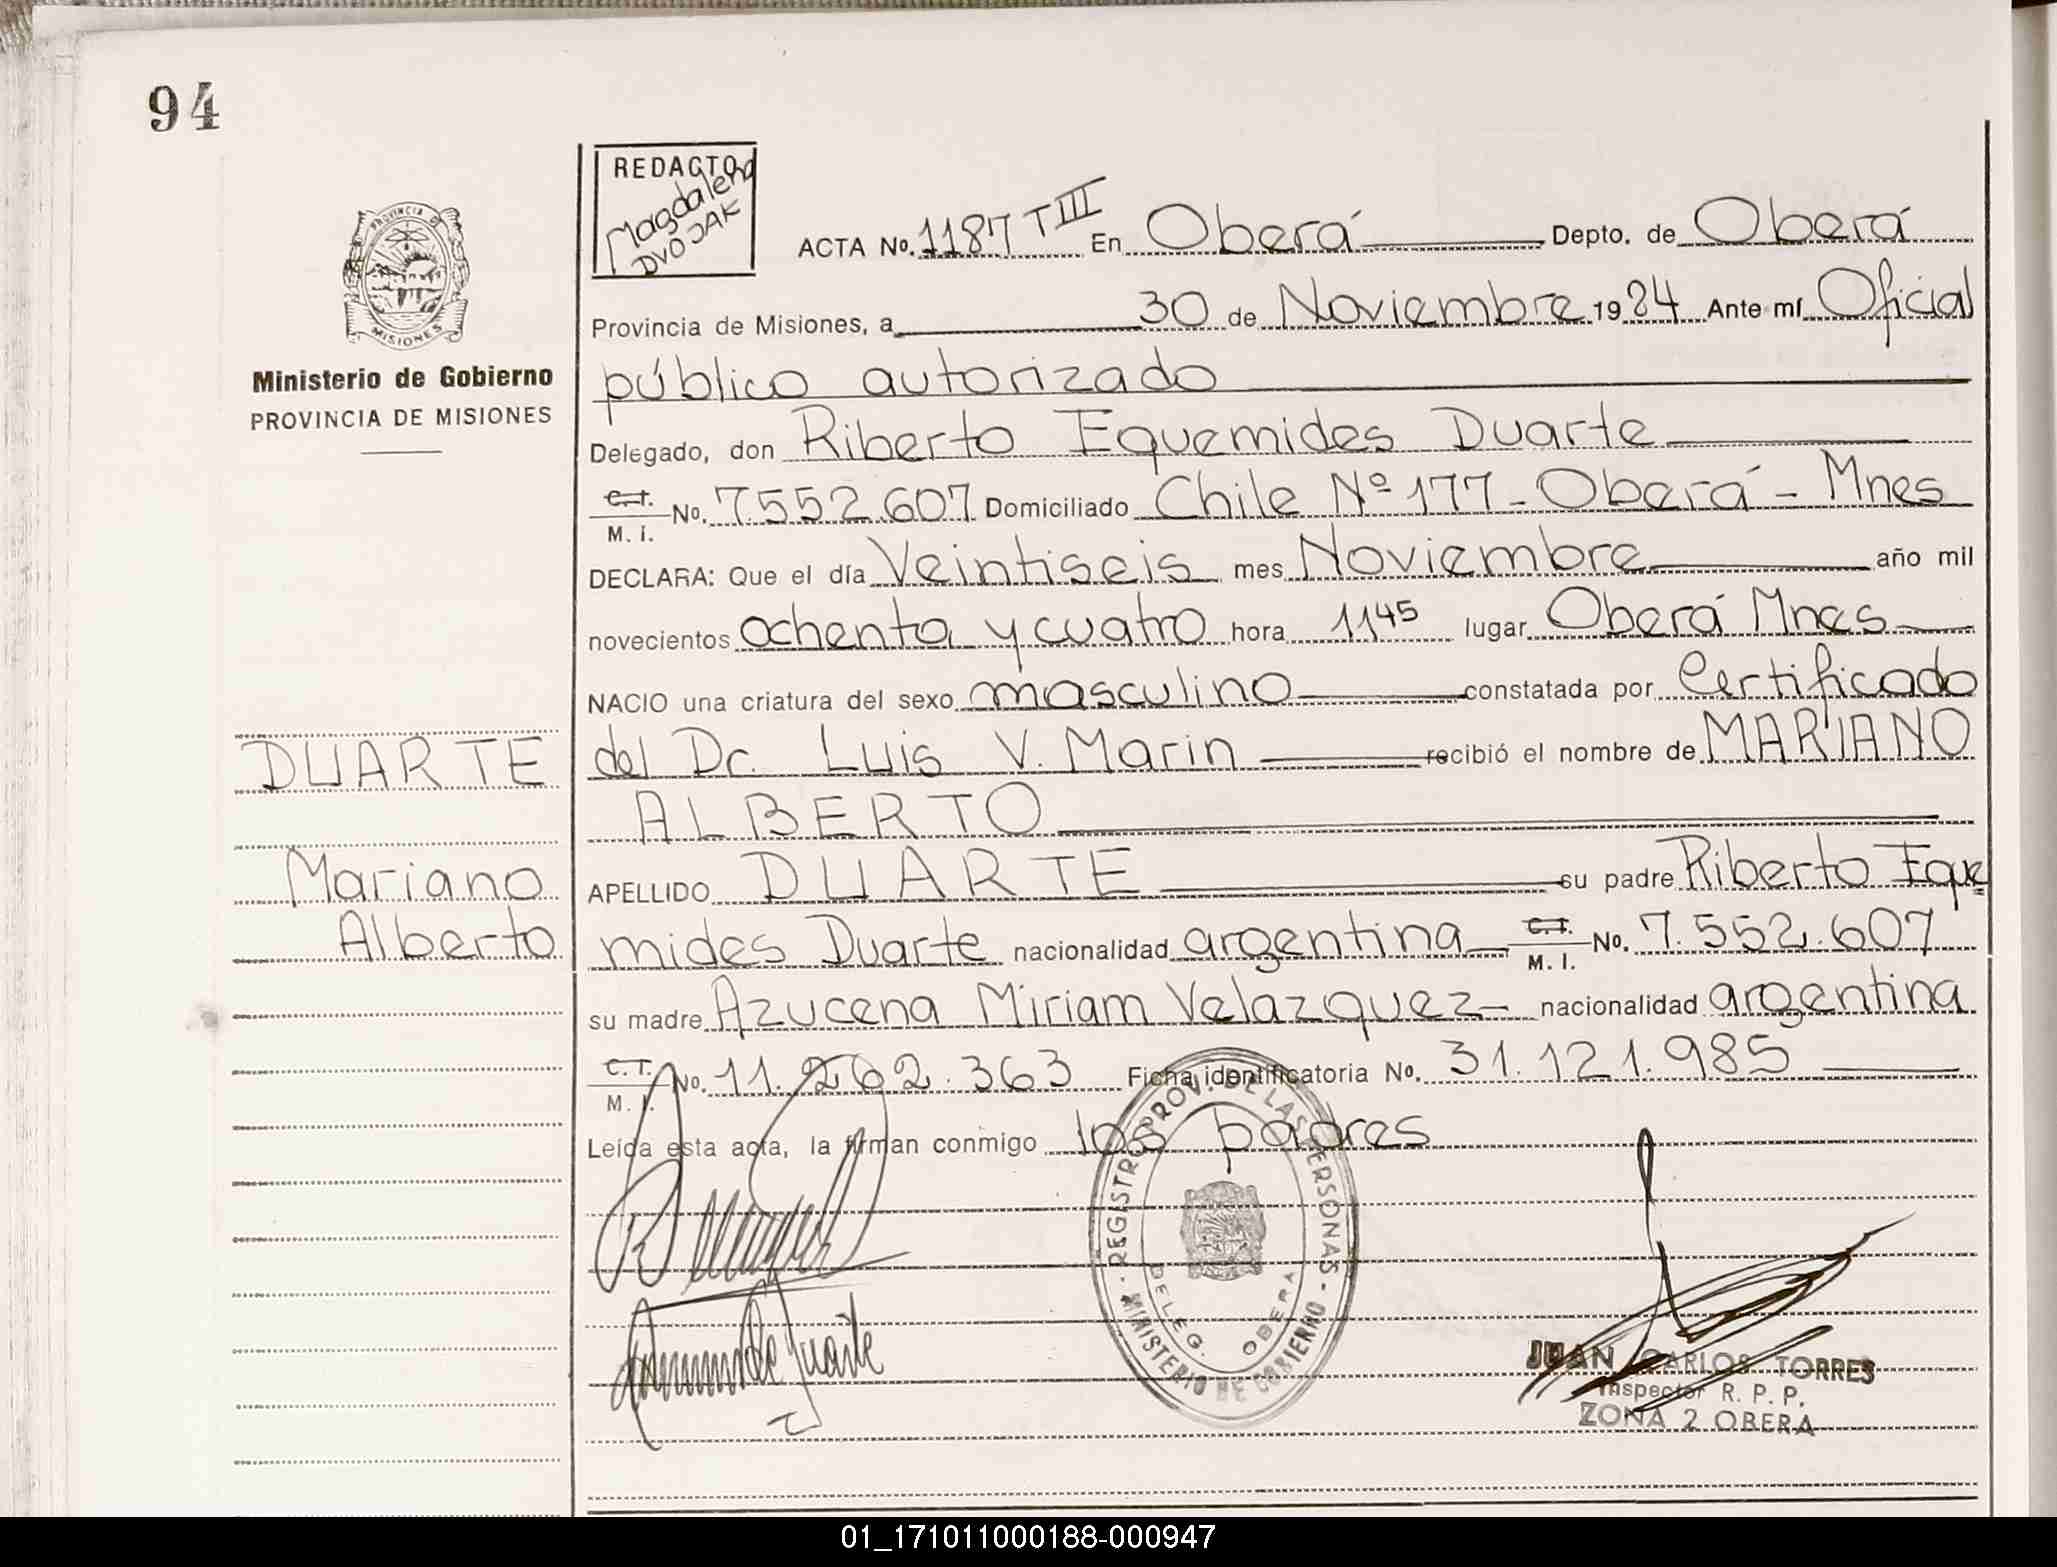 94
REDACTO
Magdalena
DVOJAK
ACTA No. 1187 T III En Oberá Depto. de Oberá
Provincia de Misiones, a 30 de Noviembre 1984 Ante mí Oficial
público autorizado
Delegado, don Riberto Equemides Duarte
C.I. M.I. No. 7.552.607 Domiciliado Chile Nº 177 - Oberá - Mnes
DECLARA: Que el día Veintiseis mes Noviembre año mil
novecientos ochenta y cuatro hora 11 45 lugar Oberá Mnes
NACIO una criatura del sexo masculino constatada por Certificado
del Dr. Luis V. Marin recibió el nombre de MARIANO
ALBERTO
APELLIDO DUARTE su padre Riberto Eque
mides Duarte nacionalidad argentina C.I. M.I. No. 7.552.607
su madre Azucena Miriam Velazquez - nacionalidad argentina
C.I. M.I. No. 11.262.363 Ficha identificatoria No. 31.121.985
Leída esta acta, la firman conmigo los padres
PROVINCIA DE
MISIONES
Ministerio de Gobierno
PROVINCIA DE MISIONES
DUARTE
Mariano
Alberto
REGISTRO PROV. DE LAS PERSONAS
MINISTERIO DE GOBIERNO
DELEG. OBERA
JUAN CARLOS TORRES
Inspector R. P. P.
ZONA 2 OBERA
01_171011000188-000947